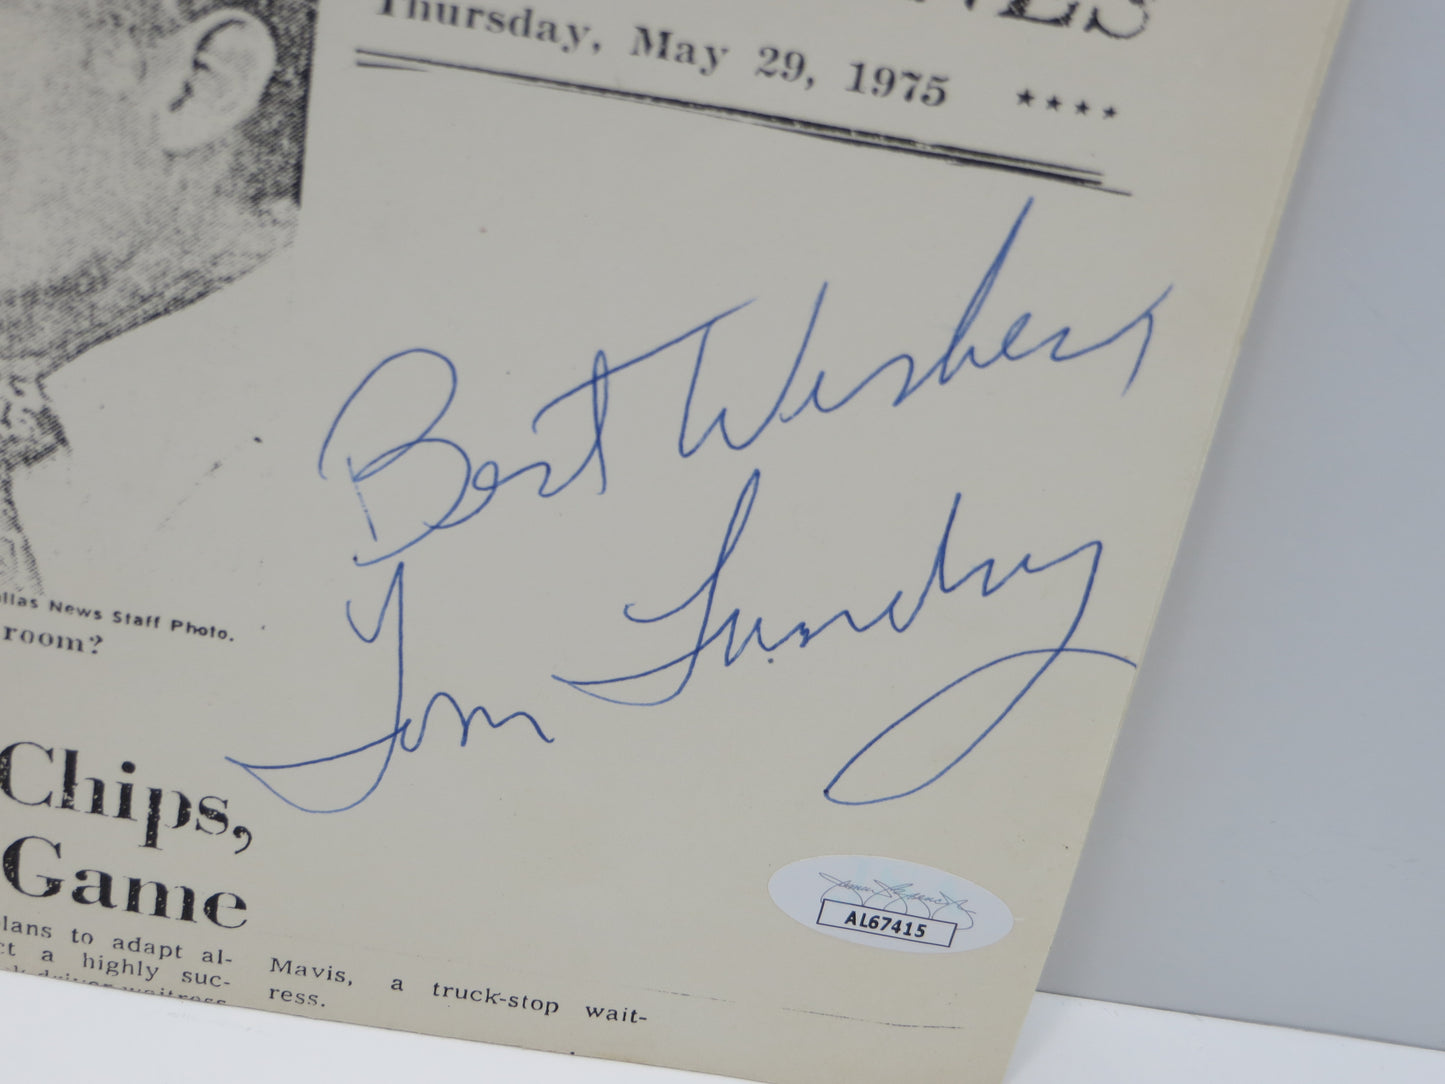 Thursday, May 29, 1975 ****
Best Wishes
Tom Landry
News Staff Photo.
room?
Chips,
Game
to adapt al-
a highly suc-
Mavis, a truck-stop wait-
ress.
AL67415